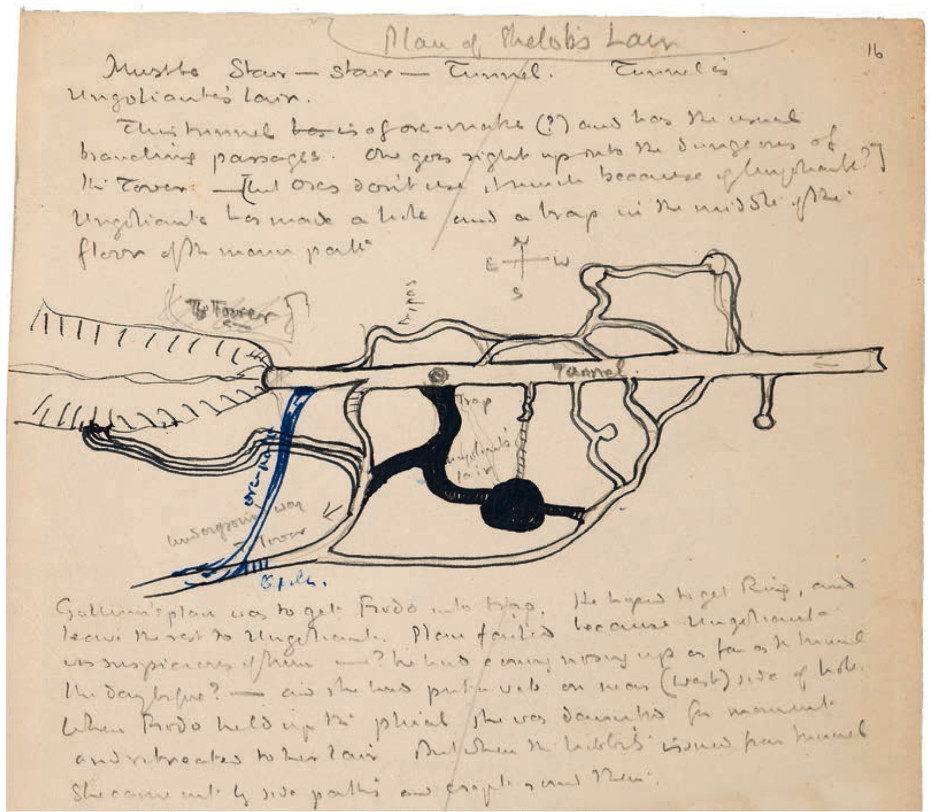 Plan of Shelob's Lair
16
Must be Stair — stair — Tunnel. Tunnel is
Ungoliante's lair.
This tunnel is of orc-make (?) and has the usual
branching passages. One goes right up into the dungeons of
the Tower. — [but orcs don't use it much because of Ungoliante?]
Ungoliante has made a hole and a trap in the middle of the
floor of the main path
N
E W
S
To Tower
Tunnel
Trap
Ungoliante's
lair
orc-path
underground way
to Tower
Gollum's plan was to get Frodo into trap. He hoped to get Ring, and
leave the rest to Ungoliante. Plan failed because Ungoliante
was suspicious of him — ? he had coming nosing up as far as the tunnel
the day before? — and she had put web on near (west) side of hole.
When Frodo held up the phial she was daunted for moment
and retreated to her lair. But when the hobbits issued from tunnel
She came out by side paths and crept round them.